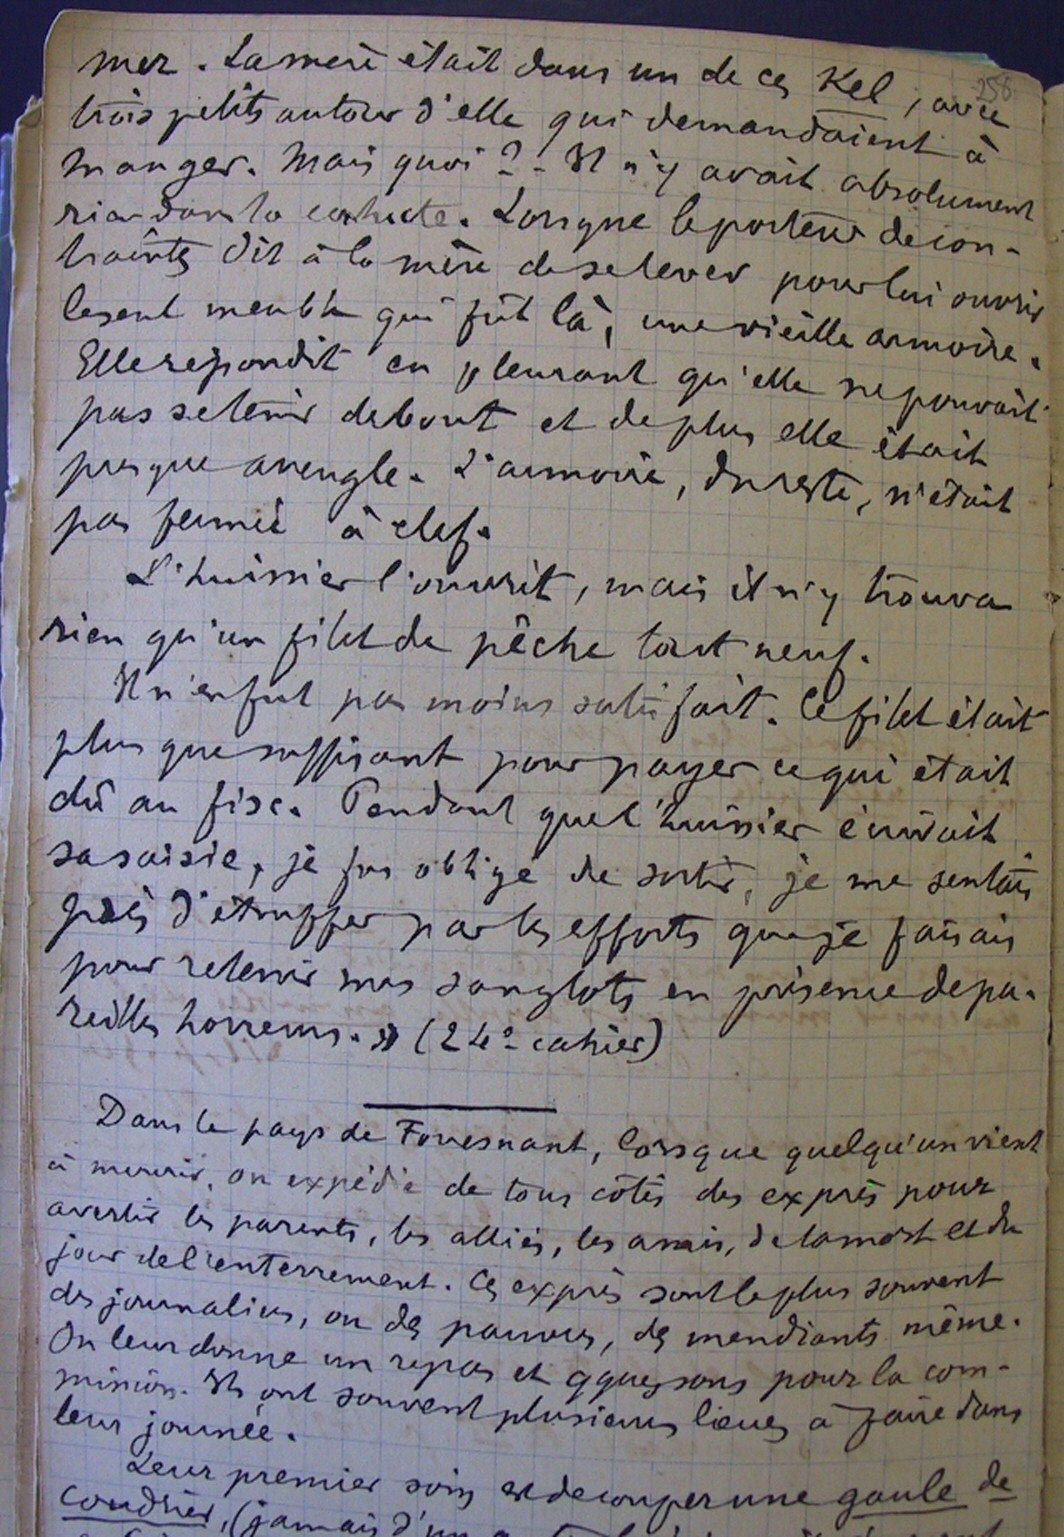 256
mer. La mère était dans un de ces Kel, avec
trois petits autour d'elle qui demandaient à
manger. Mais quoi ? - Il n'y avait absolument
rien dans la cahute. Lorsque le porteur de con-
traintes dit à la mère de se lever pour lui ouvrir
le seul meuble qui fût là, une vieille armoire.
Elle répondit en pleurant qu'elle ne pouvait
pas se tenir debout et de plus elle était
presque aveugle. L'armoire, du reste, n'était
pas fermée à clef.
L'huissier l'ouvrit, mais il n'y trouva
rien qu'un filet de pêche tout neuf.
Il n'en fut pas moins satisfait. Ce filet était
plus que suffisant pour payer ce qui était
dû au fisc. Pendant que l'huissier écrivait
sa saisie, je fus obligé de sortir, je me sentais
près d'étouffer par les efforts que je faisais
pour retenir mes sanglots en présence de pa-
reilles horreurs. » (24e cahier)
Dans le pays de Fouesnant, lorsque quelqu'un vient
à mourir, on expédie de tous côtés des exprès pour
avertir les parents, les alliés, les amis, de la mort et du
jour de l'enterrement. Ces exprès sont le plus souvent
des journaliers, ou des pauvres, des mendiants même.
On leur donne un repas et qques sous pour la com-
mission. Ils ont souvent plusieurs lieues à faire dans
leur journée.
Leur premier soin est de couper une gaule de
coudrier, (jamais d'un